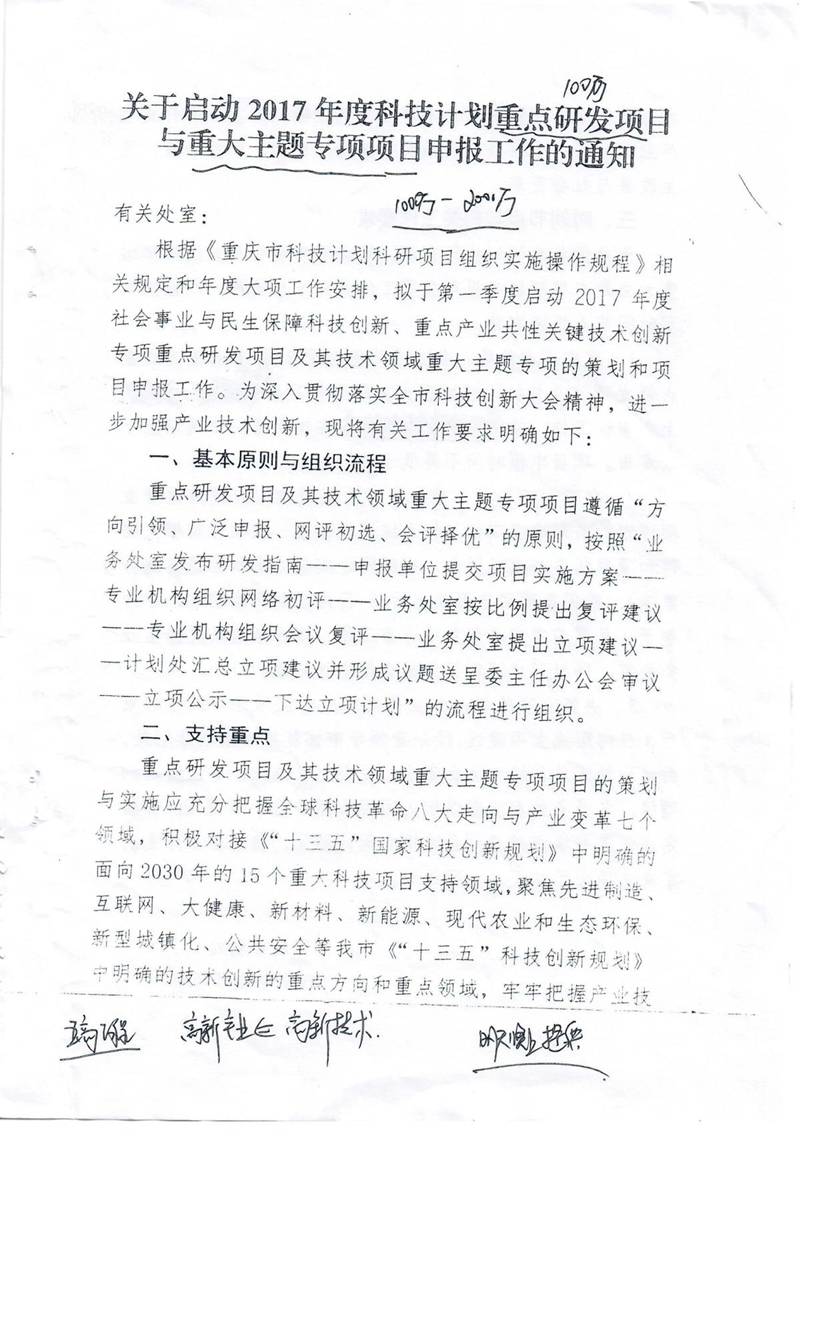 100万
关于启动 2017 年度科技计划重点研发项目
与重大主题专项项目申报工作的通知
有关处室：
根据《重庆市科技计划科研项目组织实施操作规程》相
关规定和年度大项工作安排，拟于第一季度启动 2017 年度
社会事业与民生保障科技创新、重点产业共性关键技术创新
专项重点研发项目及其技术领域重大主题专项的策划和项
目申报工作。为深入贯彻落实全市科技创新大会精神，进一
步加强产业技术创新，现将有关工作要求明确如下：
一、基本原则与组织流程
重点研发项目及其技术领域重大主题专项项目遵循“方
向引领、广泛申报、网评初选、会评择优”的原则，按照“业
务处室发布研发指南——申报单位提交项目实施方案——
专业机构组织网络初评——业务处室按比例提出复评建议
——专业机构组织会议复评——业务处室提出立项建议—
—计划处汇总立项建议并形成议题送呈委主任办公会审议
——立项公示——下达立项计划”的流程进行组织。
二、支持重点
重点研发项目及其技术领域重大主题专项项目的策划
与实施应充分把握全球科技革命八大走向与产业变革七个
领域，积极对接《“十三五”国家科技创新规划》中明确的
面向 2030 年的 15 个重大科技项目支持领域，聚焦先进制造、
互联网、大健康、新材料、新能源、现代农业和生态环保、
新型城镇化、公共安全等我市《“十三五”科技创新规划》
中明确的技术创新的重点方向和重点领域，牢牢把握产业技
高新产业 高新技术.